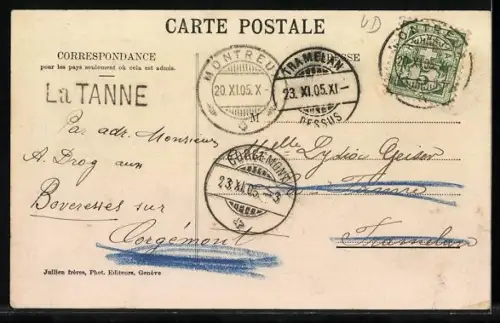 CARTE POSTALE
CORRESPONDANCE
pour les pays seulement où cela est admis.
La TANNE
MONTREUX
20.XI.05.X-
TRAMELAN
23.XI.05.XI-
DESSUS
MONTREUX
20.XI.05
Par adr. Monsieur
A. Droz aux
Boveresses sur
Corgémont
Melle Lydia Geiser
La Tanne
Tramelan
CORGÉMONT
23.XI.05.-3
Jullien frères, Phot. Editeurs, Genève